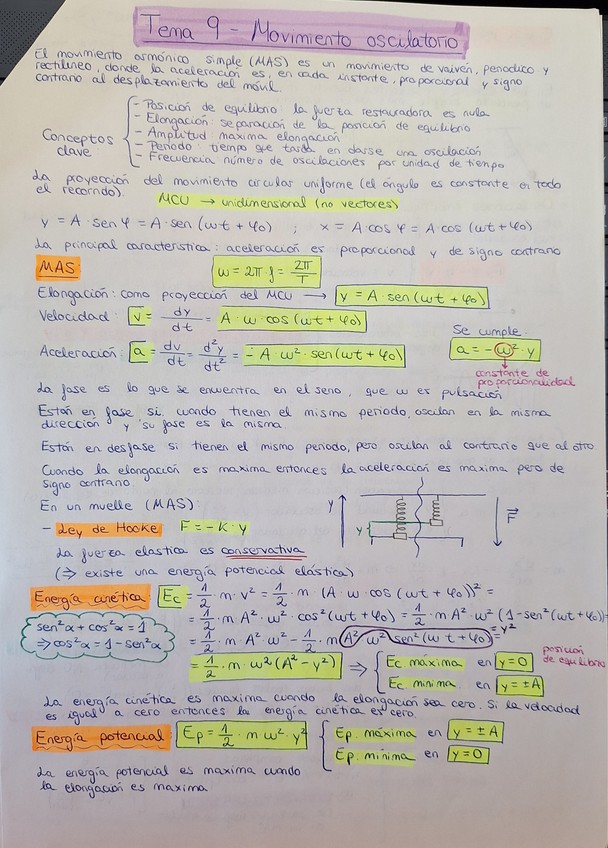 Tema 9 - Movimiento osculatorio
El movimiento armónico simple (MAS) es un movimiento de vaivén, periodico y
rectilineo, donde la aceleración es, en cada instante, proporcional y signo
contrario al desplazamiento del móvil.
Conceptos clave
- Posición de equilibrio: la fuerza restauradora es nula
- Elongación: separación de la posición de equilibrio
- Amplitud: maxima elongación
- Periodo: tiempo que tarda en darse una oscilación
- Frecuencia número de oscilaciones por unidad de tiempo
La proyección del movimiento circular uniforme (el ángulo es constante en todo
el recorrido).
MCU → unidimensional (no vectores)
y = A · sen φ = A · sen (ωt + φ0) ; x = A cos φ = A cos (ωt + φ0)
La principal característica: aceleración es proporcional y de signo contrario
MAS
ω = 2π · f = 2π/T
Elongación: como proyección del MCU → y = A · sen (ωt + φ0)
Velocidad: v = dy/dt = A · ω · cos (ωt + φ0)
Se cumple:
Aceleración: a = dv/dt = d²y/dt² = - A · ω² · sen (ωt + φ0)
a = - ω² · y
constante de
proporcionalidad
La fase es lo que se encuentra en el seno, que ω es pulsación
Están en fase si, cuando tienen el mismo periodo, oscilan en la misma
dirección y su fase es la misma.
Están en desfase si tienen el mismo periodo, pero oscilan al contrario que al otro
Cuando la elongación es maxima entonces la aceleración es maxima pero de
signo contrario.
En un muelle (MAS):
- Ley de Hooke F = - K · y
y
y
F
La fuerza elastica es conservativa
(⇒ existe una energía potencial elástica)
Energía cinética Ec = 1/2 · m · v² = 1/2 · m · (A · ω · cos (ωt + φ0))² =
= 1/2 · m A² · ω² · cos² (ωt + φ0) = 1/2 · m A² · ω² (1 - sen² (ωt + φ0)) =
sen²α + cos²α = 1
⇒ cos²α = 1 - sen²α
= 1/2 · m · A² · ω² - 1/2 · m · A² · ω² sen² (ωt + φ0) =
y²
= 1/2 · m · ω² (A² - y²) ⇒
Ec máxima en y = 0
posición
de equilibrio
Ec minima en y = ± A
La energía cinética es maxima cuando la elongación sea cero. Si la velocidad
es igual a cero entonces la energía cinética es cero.
Energía potencial Ep = 1/2 · m ω² · y²
Ep. máxima en y = ± A
Ep. mínima en y = 0
La energía potencial es maxima cuando
la elongación es maxima